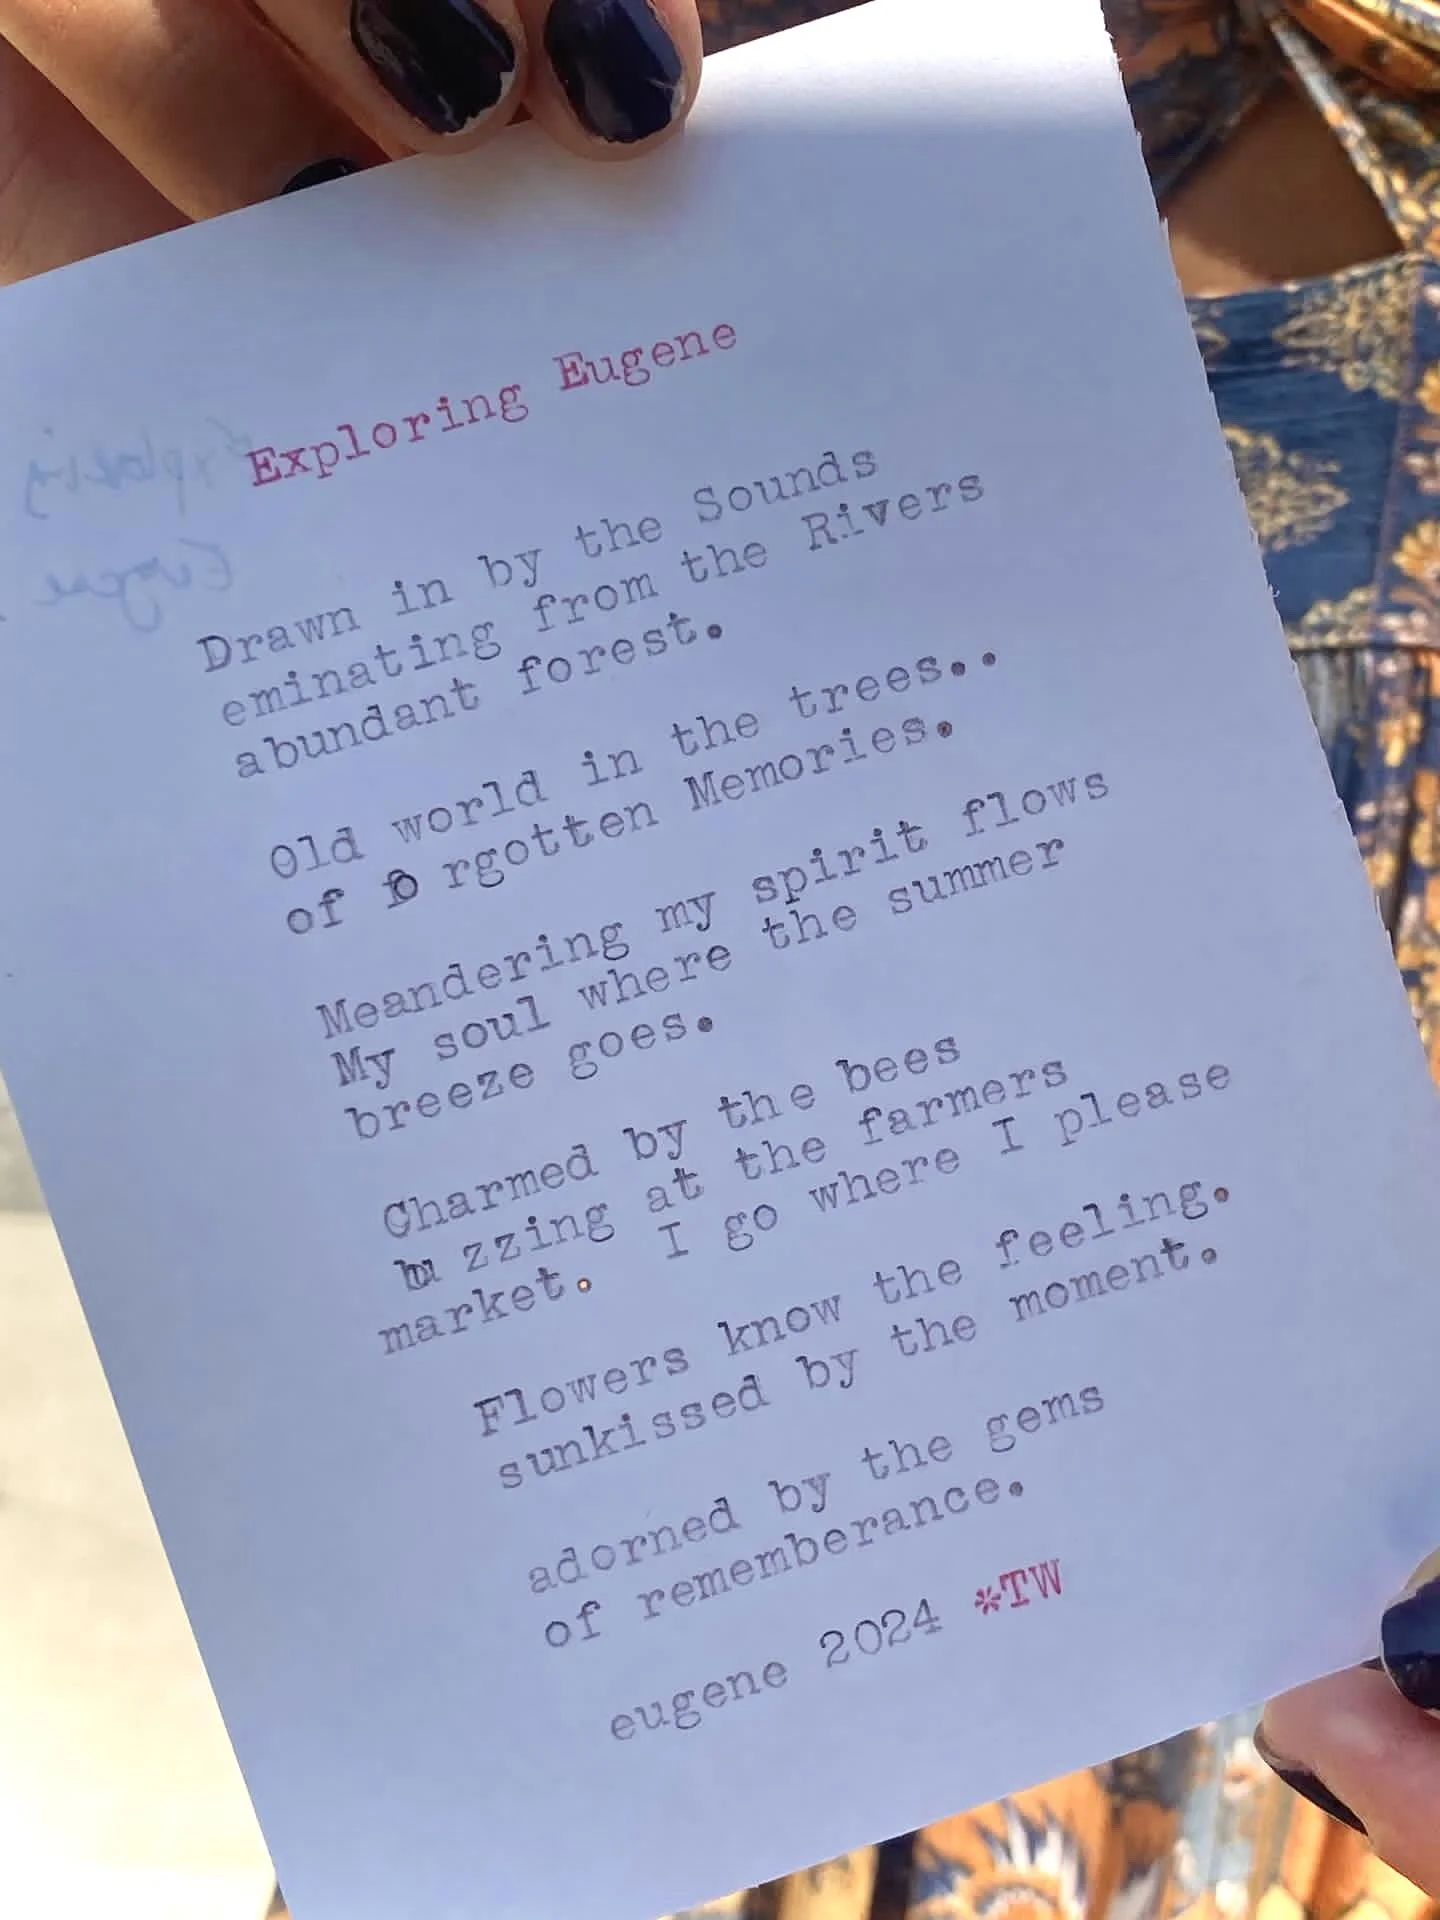 Exploring Eugene
Drawn in by the Sounds
eminating from the Rivers
abundant forest.
Old world in the trees..
of fo rgotten Memories.
Meandering my spirit flows
My soul where the summer
breeze goes.
Charmed by the bees
bu zzing at the farmers
market. I go where I please
Flowers know the feeling.
sunkissed by the moment.
adorned by the gems
of rememberance.
eugene 2024 *TW
Exploring
Eugene